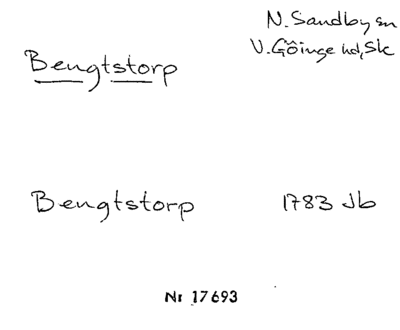 N. Sandby sn
Bengtstorp
V. Göinge hd, Sk
Bengtstorp 1783 Jb
Nr 17693